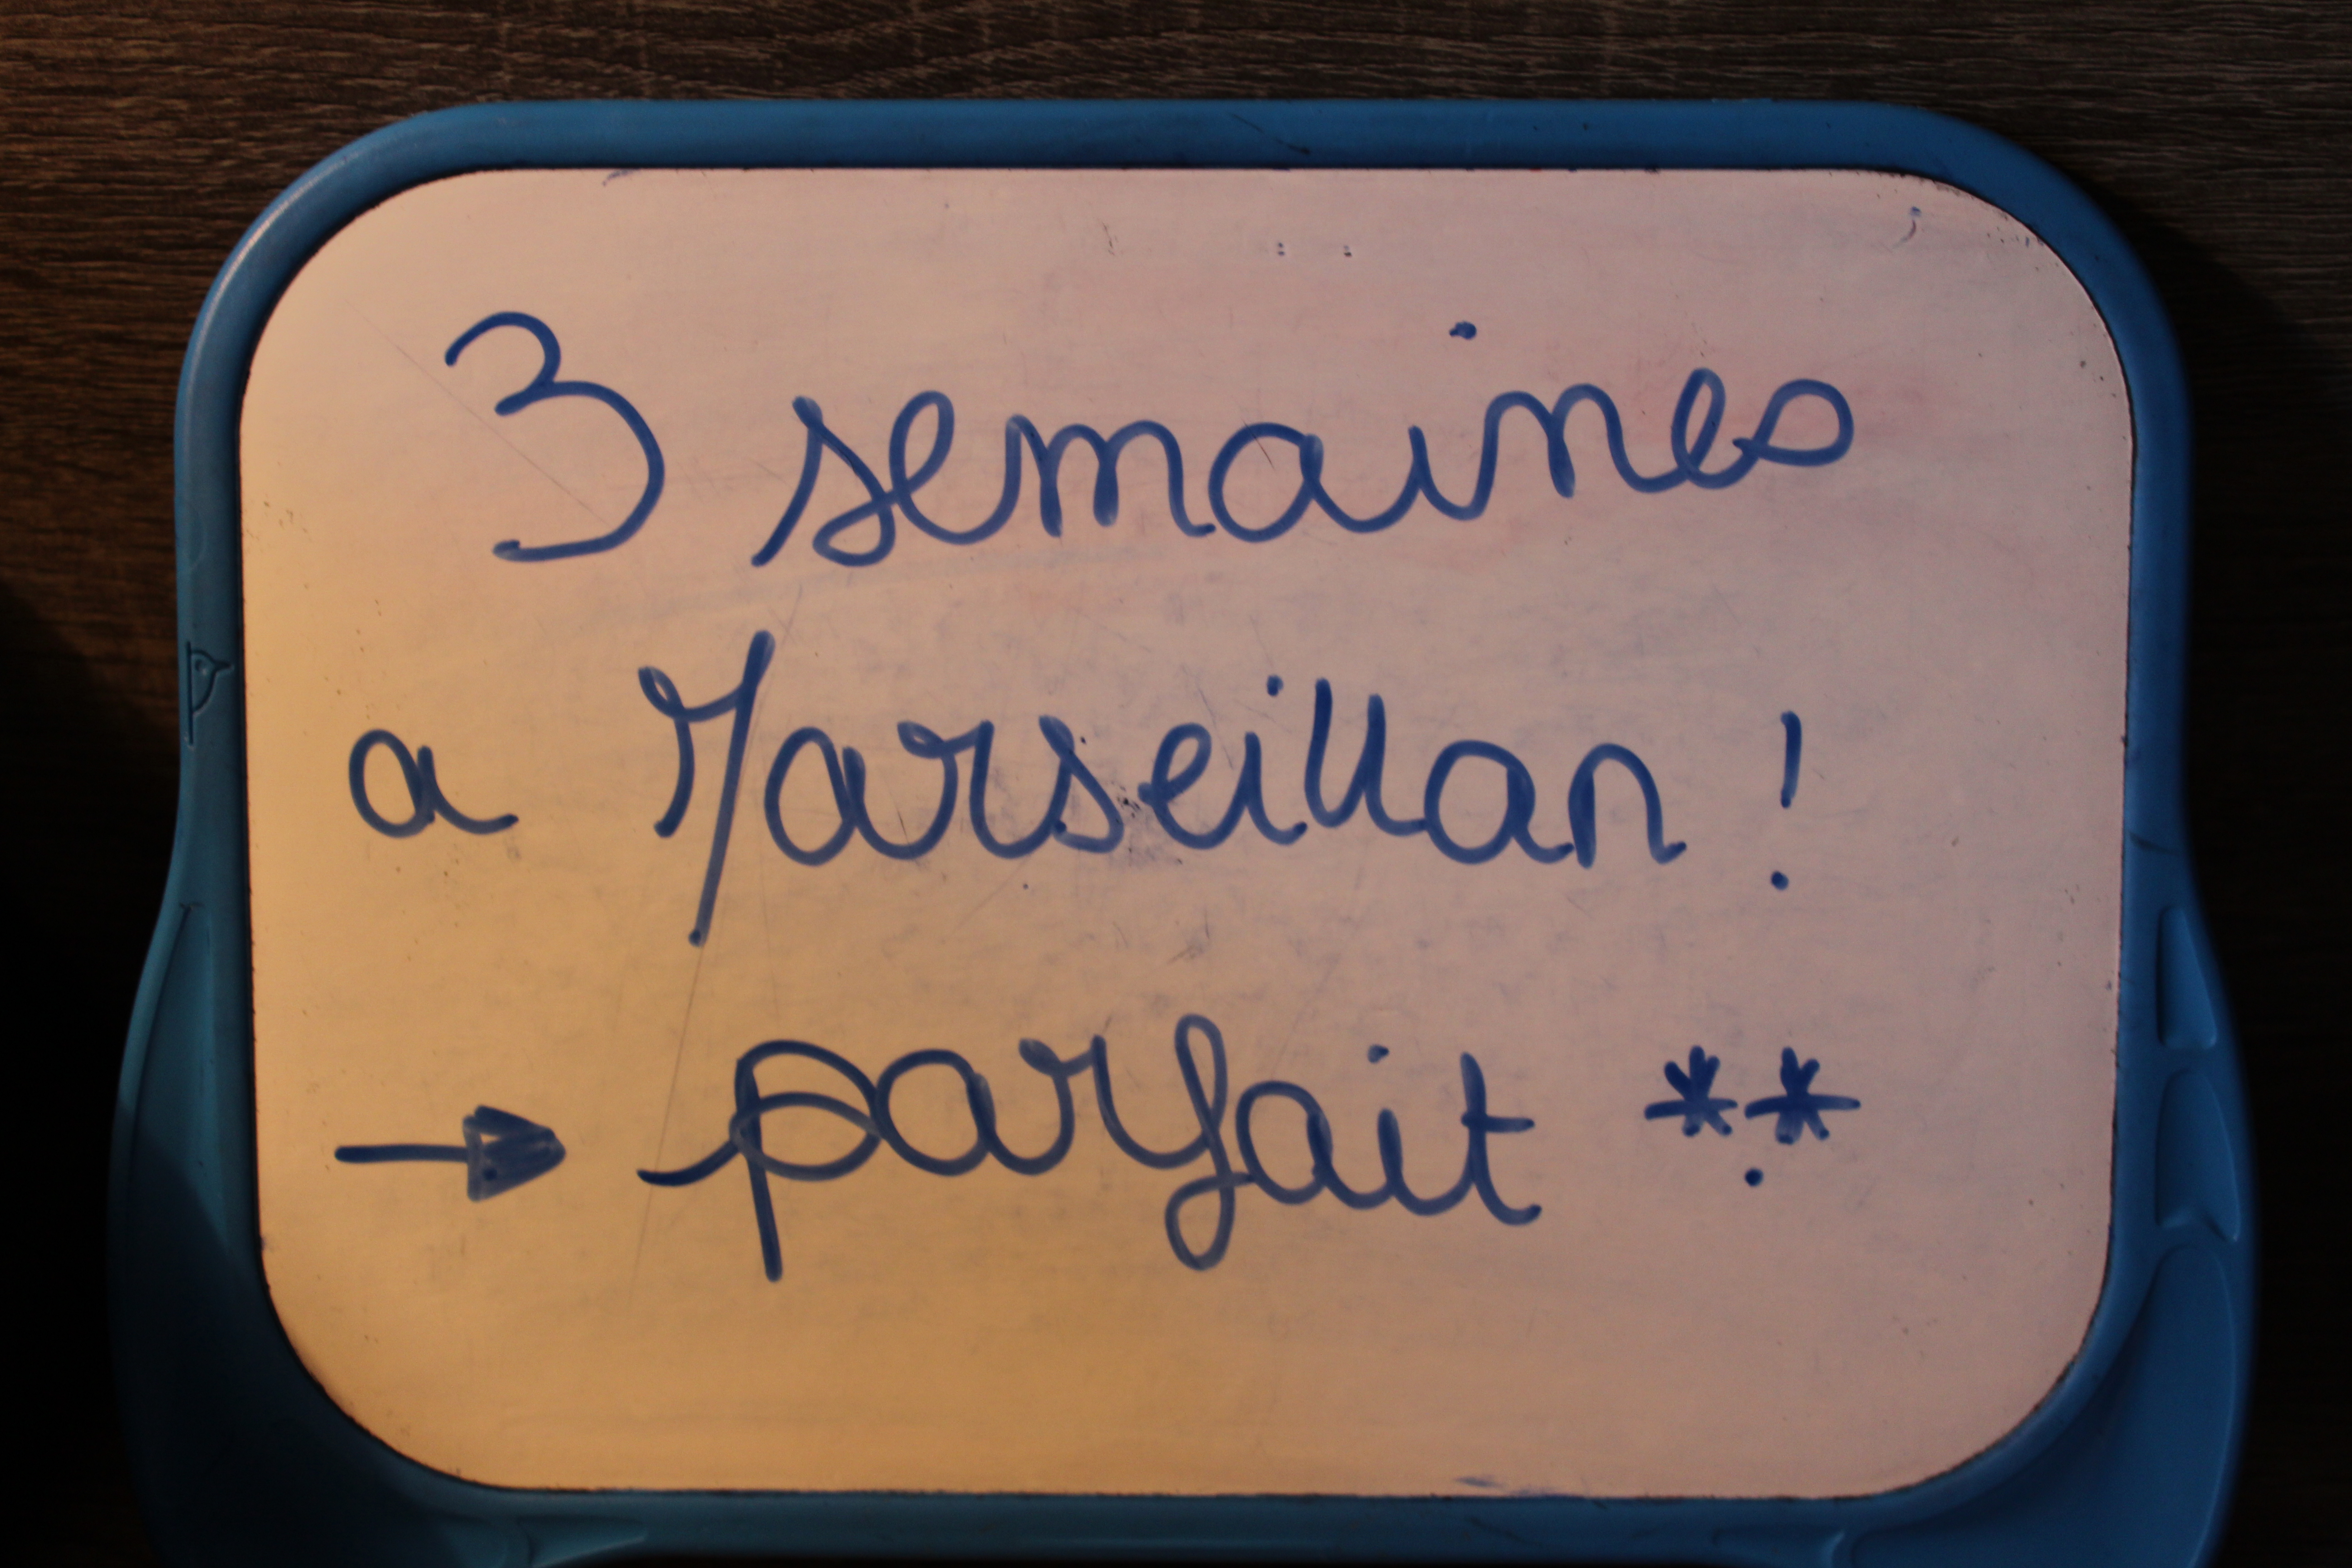 3 semaines
a Marseillan !
→ parfait **